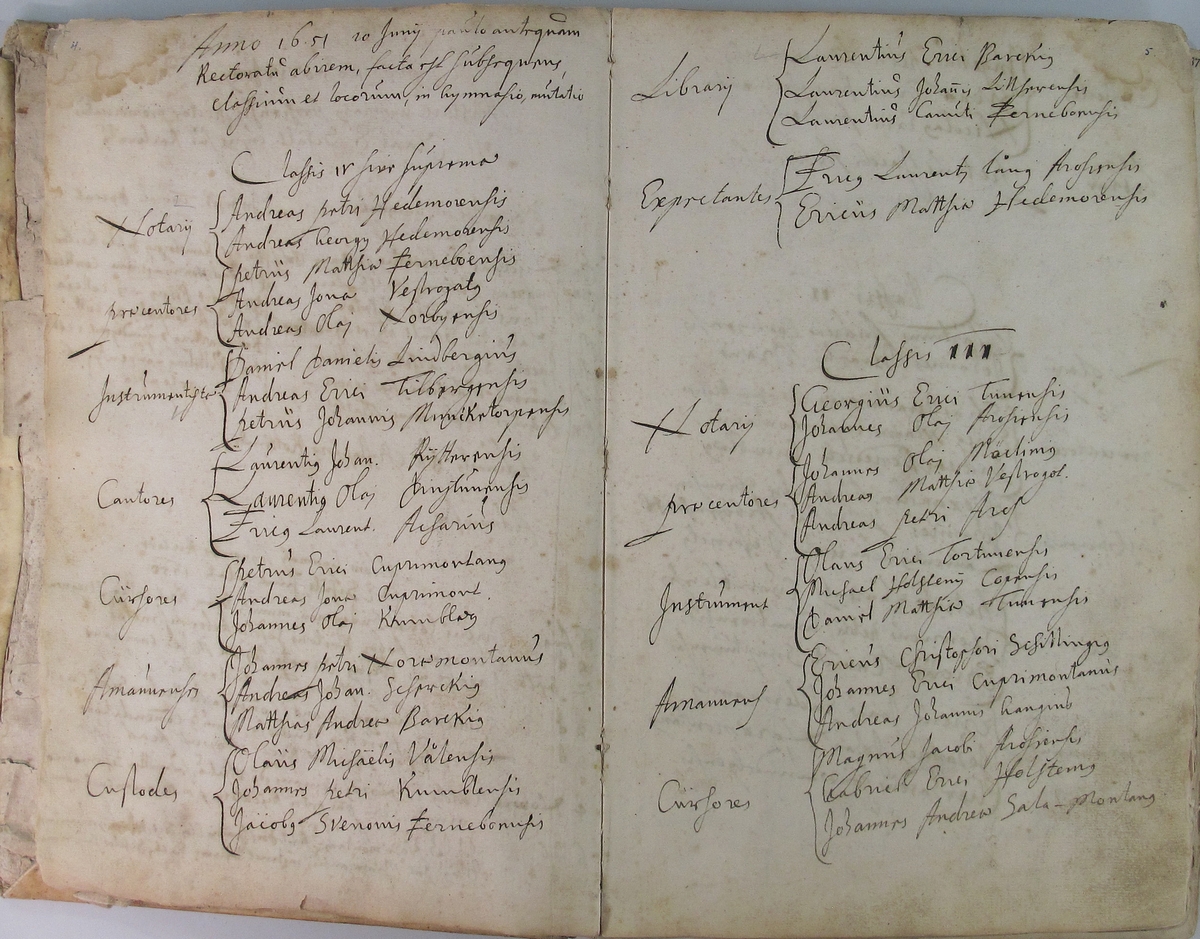 4.
Anno 1651 10 Junij paulo antequam
Rectoratū abirem, facta est subsequens,
classium et locorum, in Gymnasio, mutatio
Classis IV sive suprema
Notarij
Andreas Petri Hedemorensis
Andreas Georgij Hedemorensis
Præcentores
Petrus Matthiæ Ferneboensis
Andreas Jonæ Vestrogoty
Andreas Olaj Norbyensis
Instrumentistæ
Daniel Danielis Lindbergius
Andreas Erici Tilbergensis
Petrus Johannis Muncketorpensis
Cantores
Laurentiy Johan. Rytterensis
Laurentiy Olaj
Ericy Laurent. Acharius
Cursores
Petrus Erici Cuprimontany
Andreas Jonæ Cuprimont.
Johannes Olaj Kumblæy
Amanuenses
Johannes Petri Noræmontanus
Andreas Johan. Scherckiy
Matthias Andreæ Barckiy
Custodes
Olaus Michaëlis Vålensis
Johannes Petri Kumblensis
Jacoby Svenonis Ferneboensis
5
Librarij
Laurentius Erici Barckiy
Laurentius Johañis Littherensis
Laurentius Canuti Ferneboensis
Expectantes
Ericy Laurentij Lång Arosiensis
Ericus Matthiæ Hedemorensis
Classis III
Notarij
Georgius Erici Tunensis
Johannes Olaj Arosiensis
Præcentores
Johannes Olaj
Andreas Matthiæ Vestrogot.
Andreas Petri Aros
Instrument
Olaus Erici Tortunensis
Michael Holstenij Copensis
Daniel Matthiæ Tunensis
Amanuens
Ericus Christophori Schillingiy
Johannes Erici Cuprimontanus
Andreas Johannis
Cursores
Magnus Jacobi Arosiensis
Gabriel Erici Holsteniy
Johannes Andreæ Sala-Montany